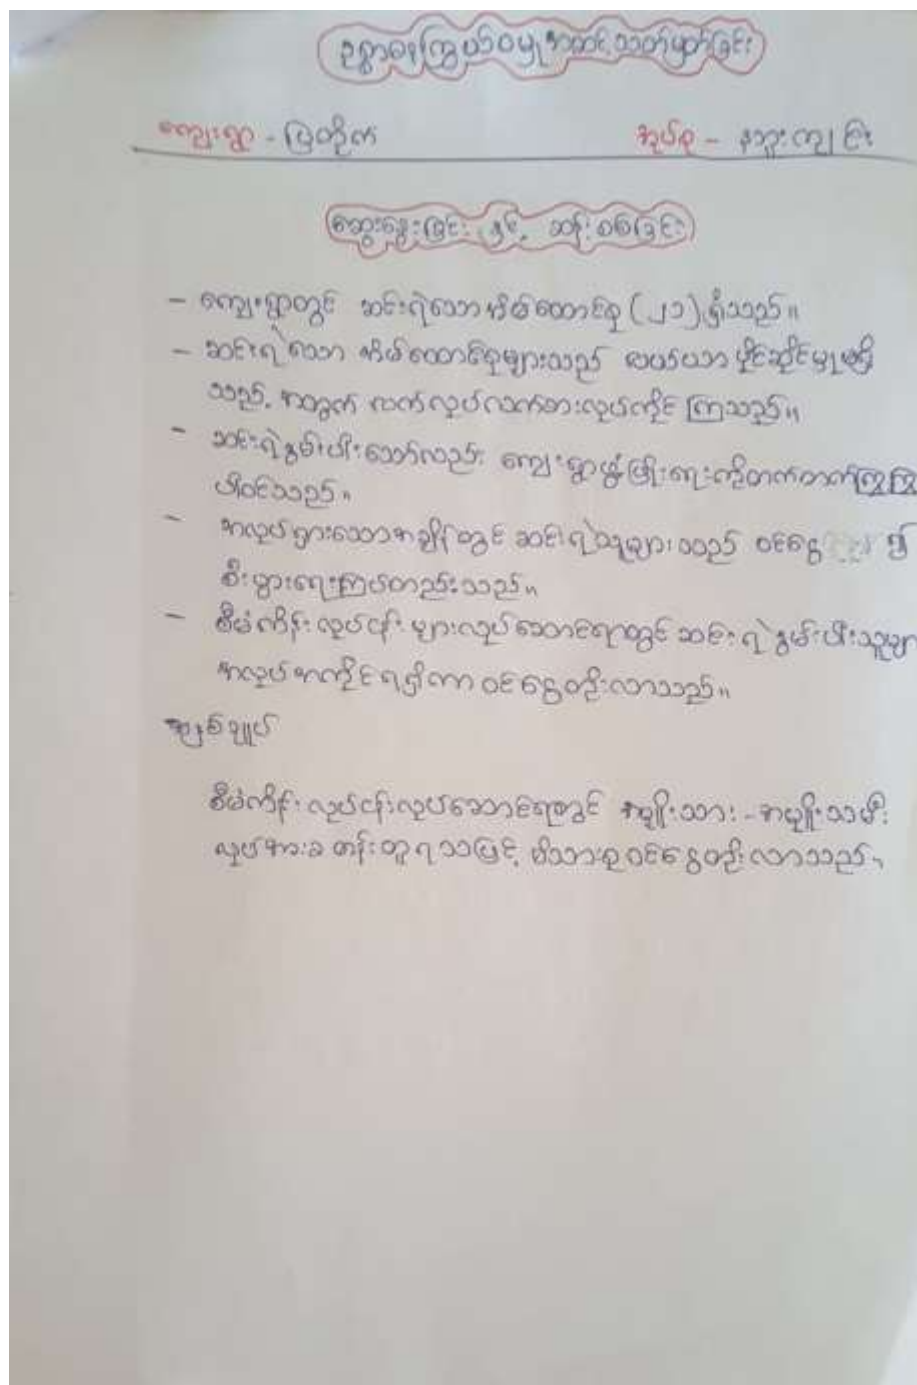 ဥစ္စာဓနကြွယ်ဝမှုအဆင့်သတ်မှတ်ခြင်း
ကျေးရွာ - မြတိုက် အုပ်စု - နဘူးကျင်း
ဆွေးနွေးခြင်း နှင့် ဆန်းစစ်ခြင်း
- ကျေးရွာတွင် ဆင်းရဲသောအိမ်ထောင်စု (၂၁) ရှိသည်။
- ဆင်းရဲသော အိမ်ထောင်စုများသည် လယ်ယာ ပိုင်ဆိုင်မှုမရှိ
သည့် အတွက် လက်လုပ်လက်စားလုပ်ကိုင် ကြသည်။
- ဆင်းရဲနွမ်းပါးသော်လည်း ကျေးရွာဖွံ့ဖြိုးရေးကိုတက်တက်ကြွကြွ
ပါဝင်သည်။
- အလုပ်ရှားသောအချိန်တွင် ဆင်းရဲသူများသည် ဝင်ငွေ ၍
စီးပွားရေးကြပ်တည်းသည်။
- စီမံကိန်းလုပ်ငန်းများလုပ်ဆောင်ရာတွင် ဆင်းရဲနွမ်းပါးသူများ
အလုပ်အကိုင်ရရှိကာ ဝင်ငွေတိုးလာသည်။
အနှစ်ချုပ်
စီမံကိန်းလုပ်ငန်းလုပ်ဆောင်ရာတွင် အမျိုးသား - အမျိုးသမီး
လုပ်အားခ တန်းတူရသဖြင့် မိသားစုဝင်ငွေတိုးလာသည်။